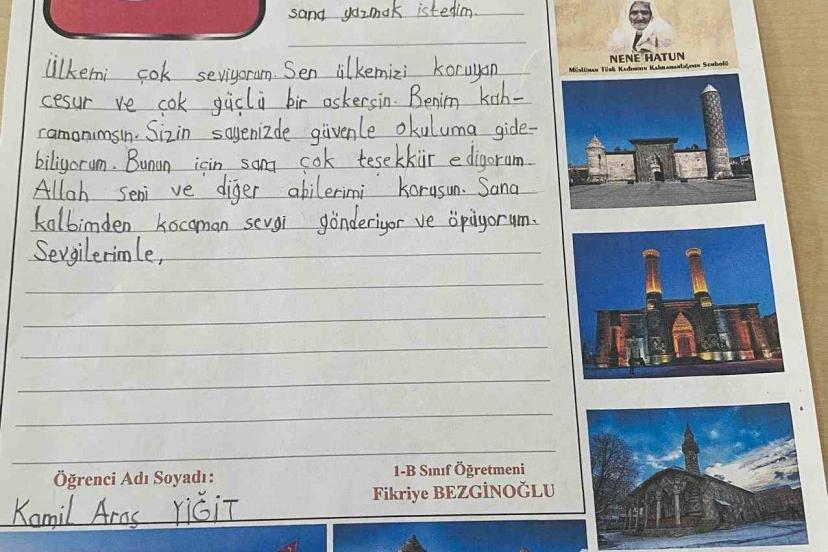 sana yazmak istedim.
Ülkemi çok seviyorum. Sen ülkemizi koruyan
cesur ve çok güçlü bir askersin. Benim kah-
ramanımsın. Sizin sayenizde güvenle okuluma gide-
biliyorum. Bunun için sana çok teşekkür ediyorum.
Allah seni ve diğer abilerimi korusun. Sana
kalbimden kocaman sevgi gönderiyor ve öpüyorum.
Sevgilerimle,
Öğrenci Adı Soyadı:
Kamil Aras YİĞİT
1-B Sınıf Öğretmeni
Fikriye BEZGİNOĞLU
NENE HATUN
Müslüman Türk Kadınının Kahramanlığının Sembolü